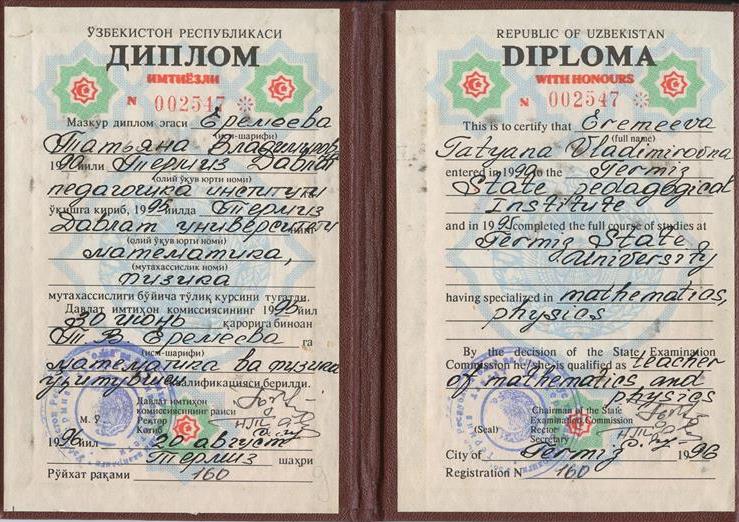 ЎЗБЕКИСТОН РЕСПУБЛИКАСИ
ДИПЛОМ
ИМТИЁЗЛИ
N 002547
Мазкур диплом эгаси Еремеева
(исм-шарифи)
Татьяна Владимировна
1990 йили Термиз Давлат
(олий ўқув юрти номи)
педагогика институти га
ўқишга кириб, 1995 йилда Термиз
Давлат университети нинг
(олий ўқув юрти номи)
математика,
(мутахассислик номи)
физика
мутахассислиги бўйича тўлиқ курсини тугатди.
Давлат имтиҳон комиссиясининг 1995 йил
30 июнь қарорига биноан
Т. В. Еремеева га
(исм-шарифи)
математика ва физика
ўқитувчиси квалификацияси берилди.
Давлат имтиҳон
комиссиясининг раиси
М. Ў. Ректор
Котиб
1996 йил 20 август
Термиз шаҳри
Рўйхат рақами 160
REPUBLIC OF UZBEKISTAN
DIPLOMA
WITH HONOURS
N 002547
This is to certify that Eremeeva
(full name)
Tatyana Vladimirovna
entered in 1990 to the Termiz
State pedagogical
Institute
and in 1995 completed the full course of studies at
Termiz State
University
having specialized in mathematics,
physics
By the decision of the State Examination
Commission he/she is qualified as teacher
of mathematics and
physics
Chairman of the State
Examination Commission
(Seal) Rector
Secretary
City of Termiz 1996
Registration N 160